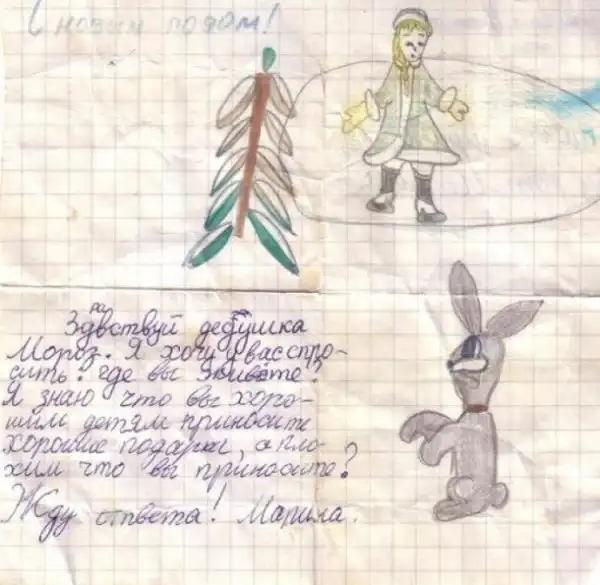 С новым годам!
Здравствуй дедушка
Мороз. Я хочу у вас спро-
сить? где вы живёте?
Я знаю что вы хоро-
шим детям приносите
хорошие подарки, а пло-
хим что вы приносите?
Жду ответа! Марина.